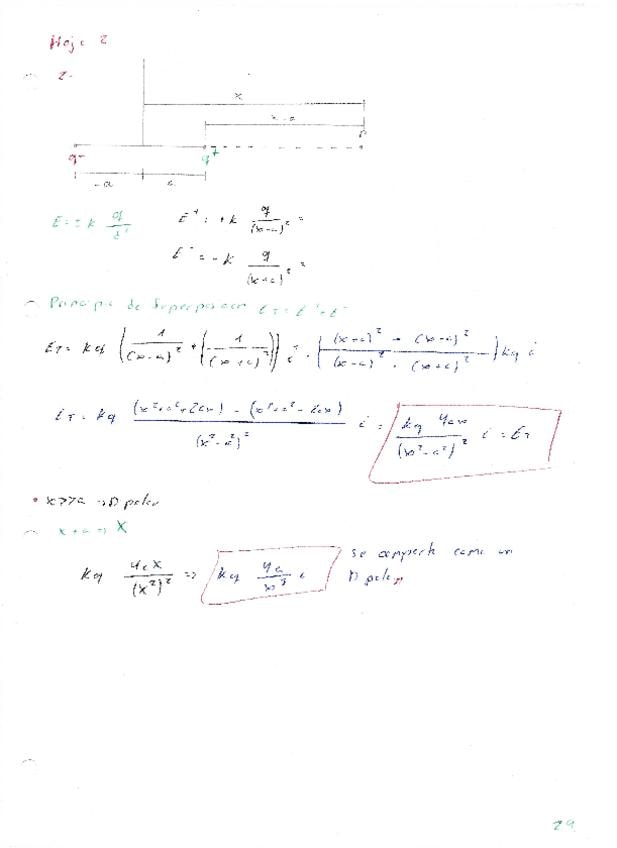 Hoja 2
2.
x
x-a
P
q- q+
-a a
E = ± k q/d²
E⁺ = +k q/(x-a)² =
E⁻ = -k q/(x+a)² =
Principio de Superposicion E_T = E⁺ + E⁻
E_T = kq (1/(x-a)² + (-1/(x+a)²)) i = ((x+a)² - (x-a)²/(x-a)² · (x+a)²) kq i
E_T = kq (x²+a²+2ax) - (x²+a²-2ax)/(x²-a²)² i = kq 4ax/(x²-a²)² i = E_T
• x>>a → D polar
x+a => X
kq 4aX/(x²)² => kq 4a/x³ i se comporta como un
D polar
29